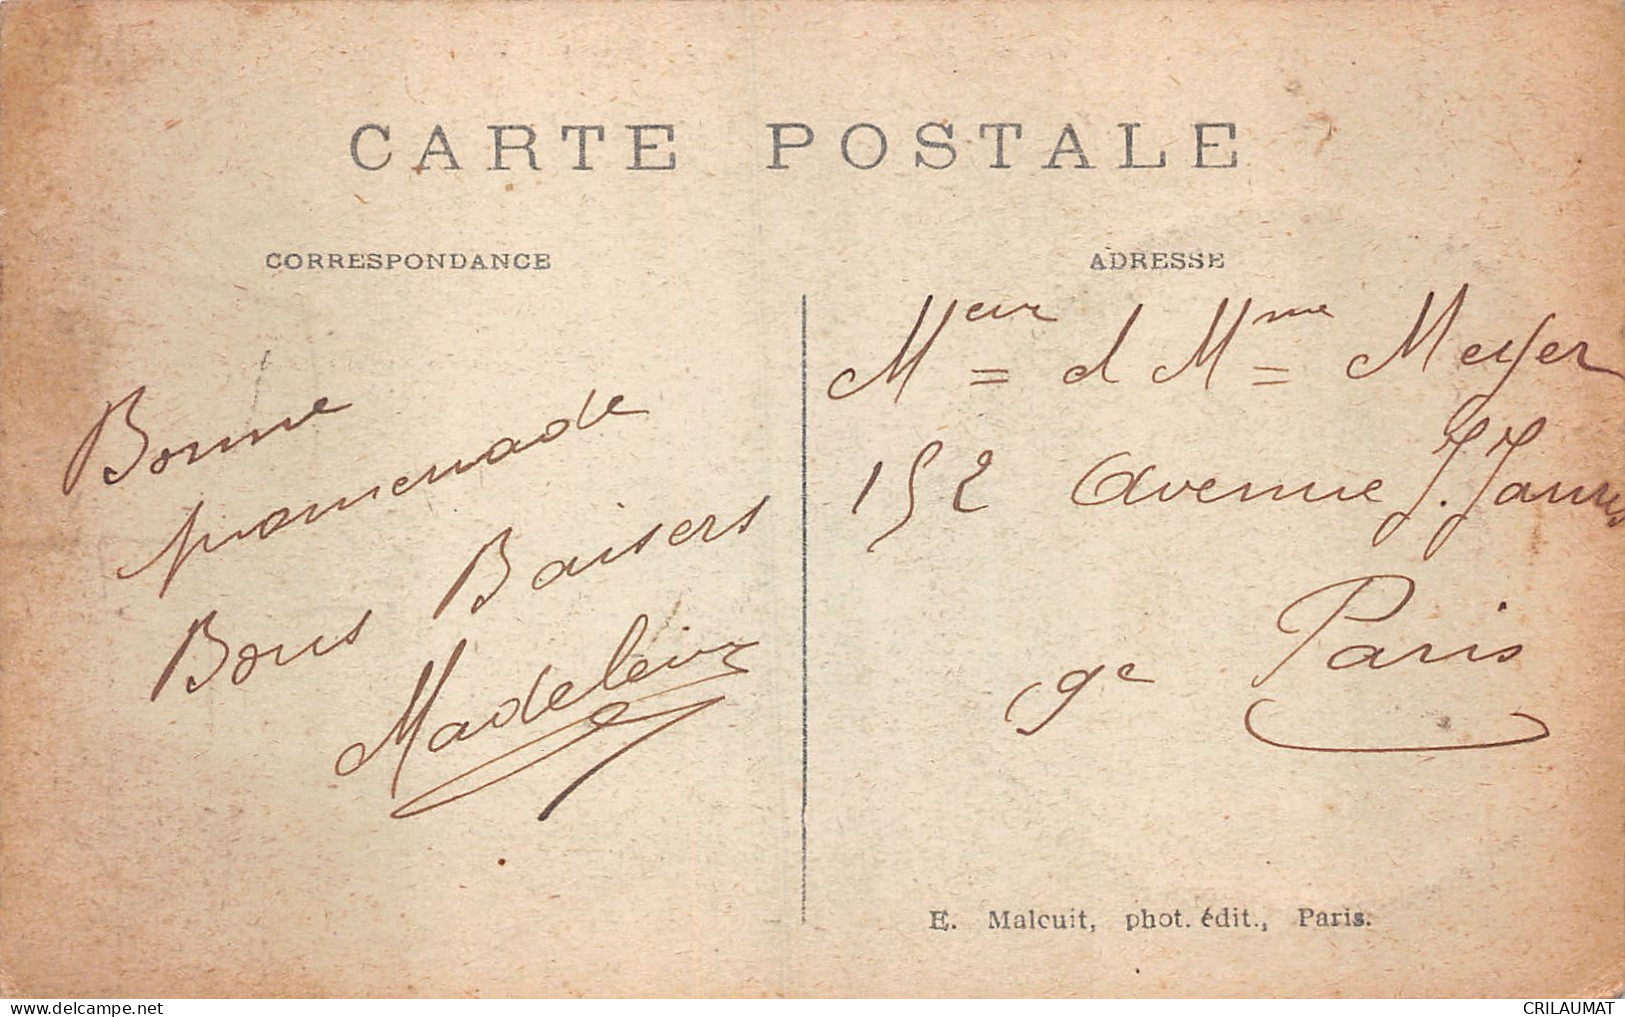 CARTE POSTALE
CORRESPONDANCE
Bonne
promenade
Bons Baisers
Madeleine
ADRESSE
Meur et Mme Meyer
152 Avenue J. Jaures
9e Paris
E. Malcuit, phot. édit., Paris.
delcampe.net
CRILAUMAT